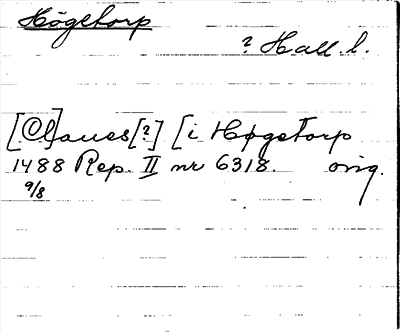 Högetorp
? Hall. l.
[Cl]aues [?] [i Høgetorp
1488 Rep. II nr 6318. orig.
9/8